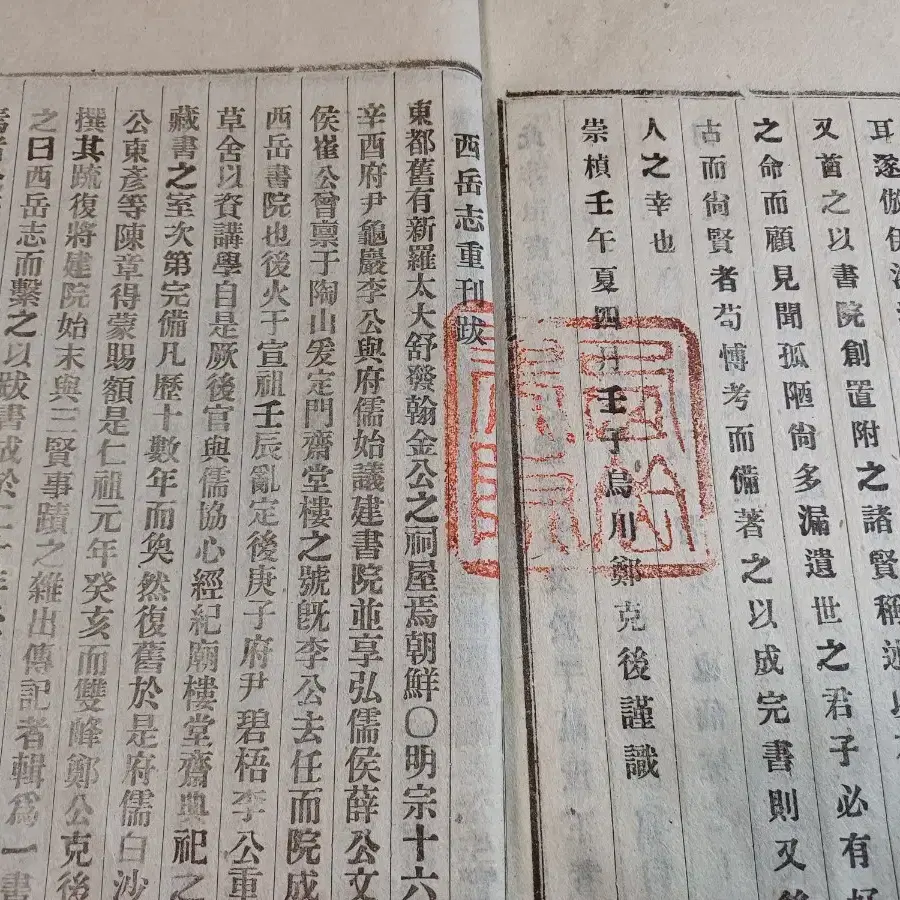 耳遂倣伊
又酋之以書院創置附之諸賢稱述
之命而顧見聞孤陋尙多漏遺世之君子必有
古而尙賢者苟愽考而備著之以成完書則又
人之幸也
崇楨壬午夏四月壬子烏川鄭克後謹識
西岳志重刊跋
東都舊有新羅太大舒發翰金公之祠屋焉朝鮮〇明宗十六
辛酉府尹龜巖李公與府儒始議建書院並享弘儒侯薛公文
侯崔公曾禀于陶山爰定門齋堂樓之號旣李公去任而院成
西岳書院也後火于宣祖壬辰亂定後庚子府尹碧梧李公重
草舍以資講學自是厥後官與儒協心經紀廟樓堂齋典祀之
藏書之室次第完備凡歷十數年而奐然復舊於是府儒白沙
公東彥等陳章得蒙賜額是仁祖元年癸亥而雙峰鄭公克後
撰其䟽復將建院始末與三賢事蹟之雜出傳記者輯爲一書
之曰西岳志而繫之以跋書成於二十年